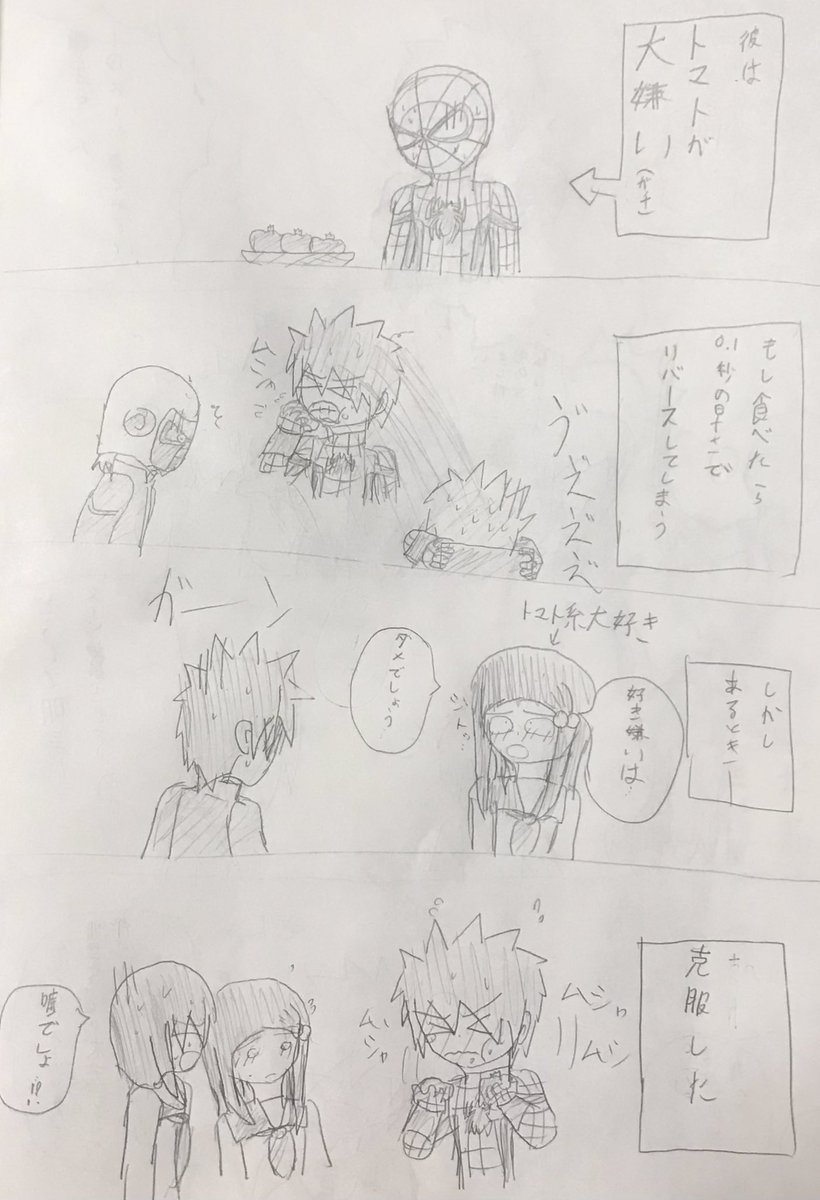 彼は
トマトが
大嫌い
(ガチ)
もし食べたら
0.1秒の早さで
リバースしてしまう
ムシャ
ヴェェェ
しかし
あるとき
トマト系大好き
好き嫌いは…
ダメでしょう…
ジトッ
ガーーン
克服した
ムシャリムシ
ムシャ
嘘でしょ!!?